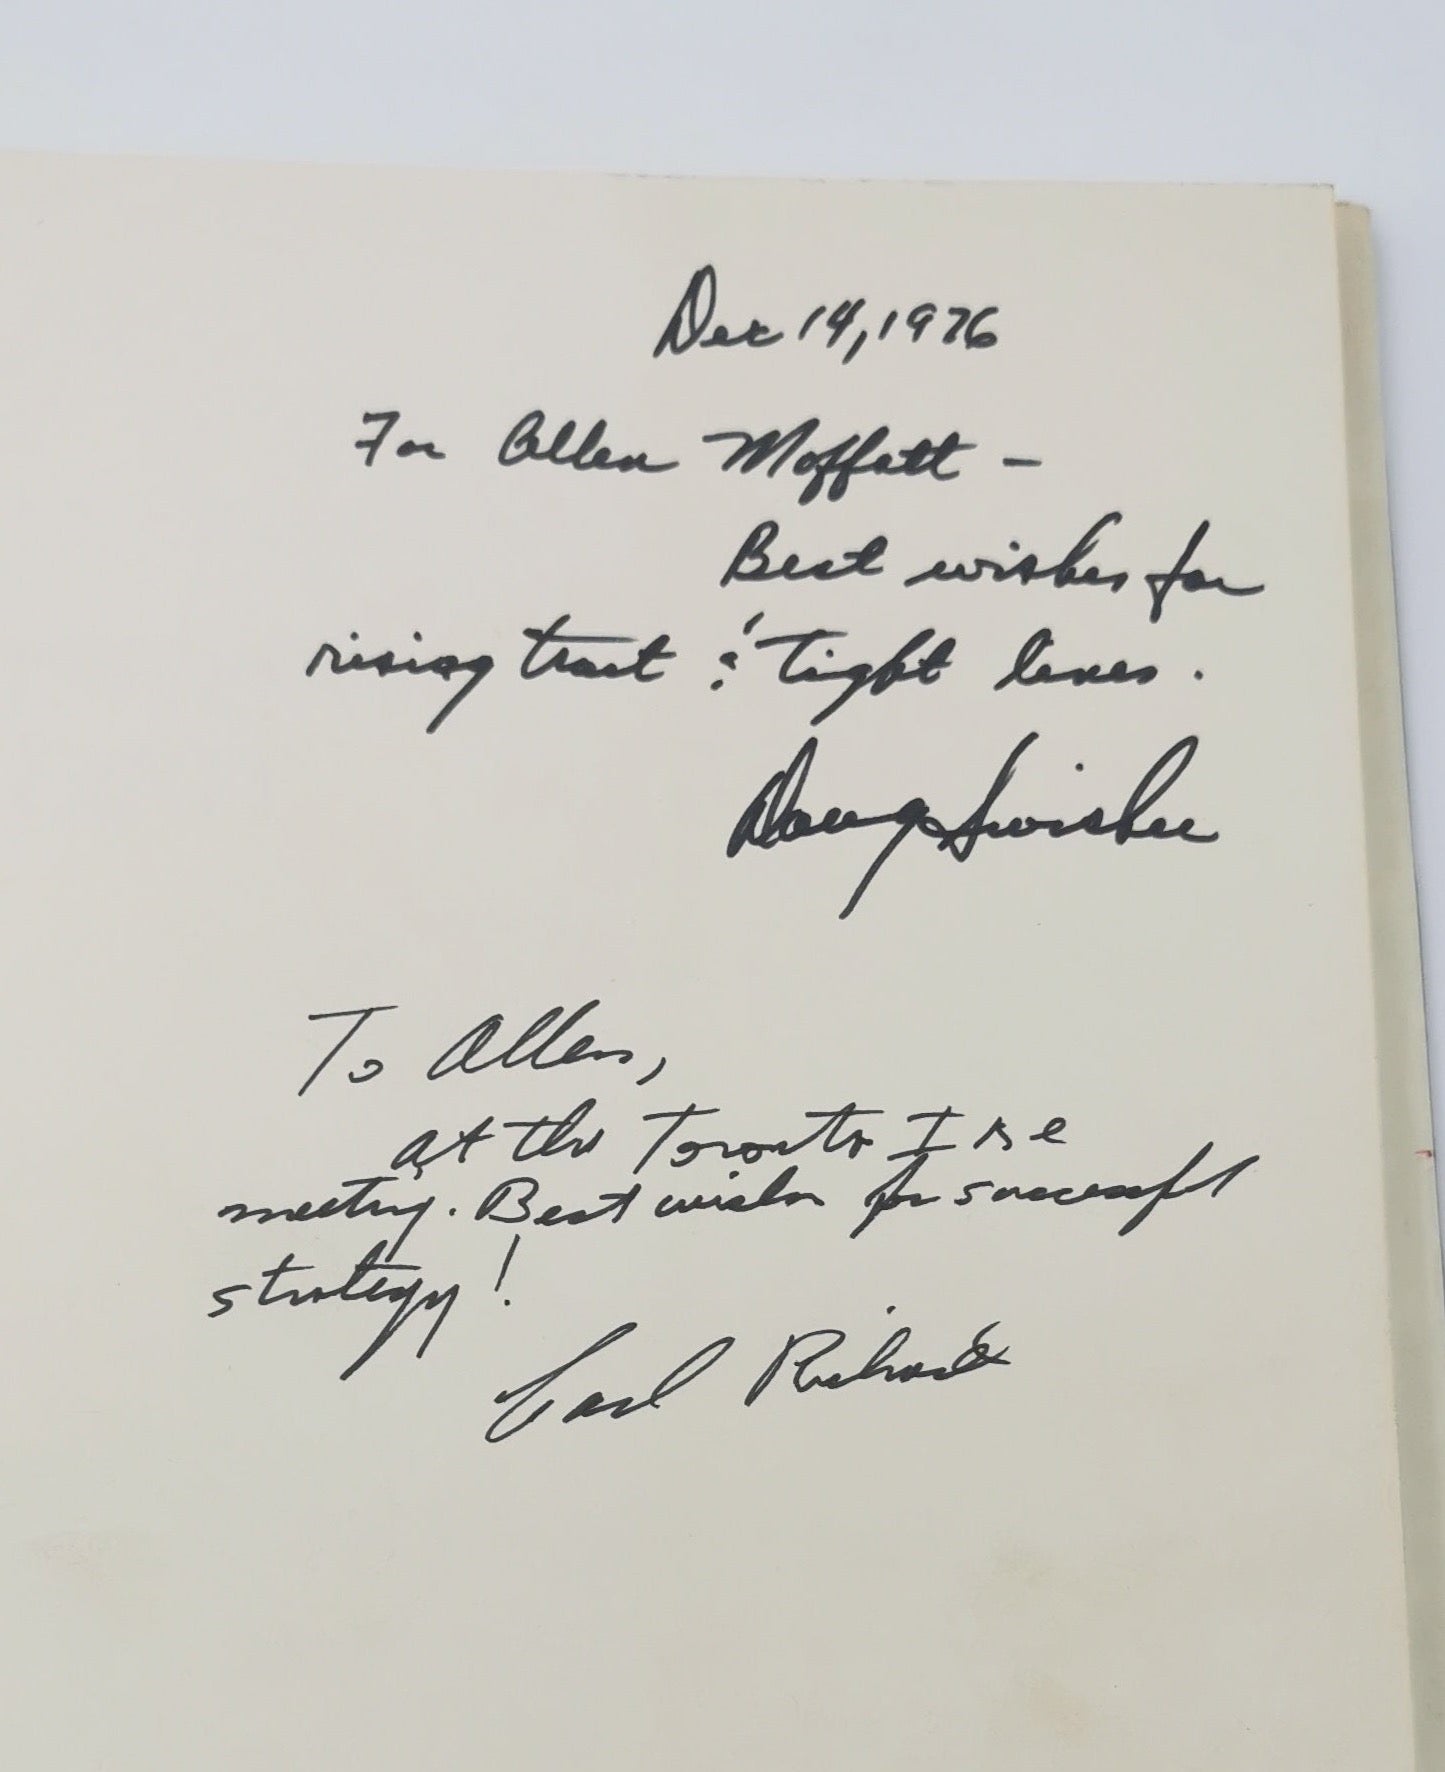 Dec 14, 1976
For Allen Moffatt -
Best wishes for
rising trout & tight lines.
Doug Swisher
To Allen,
at the Toronto I w e
meeting. Best wishes for successful
strategy!
Carl Richards